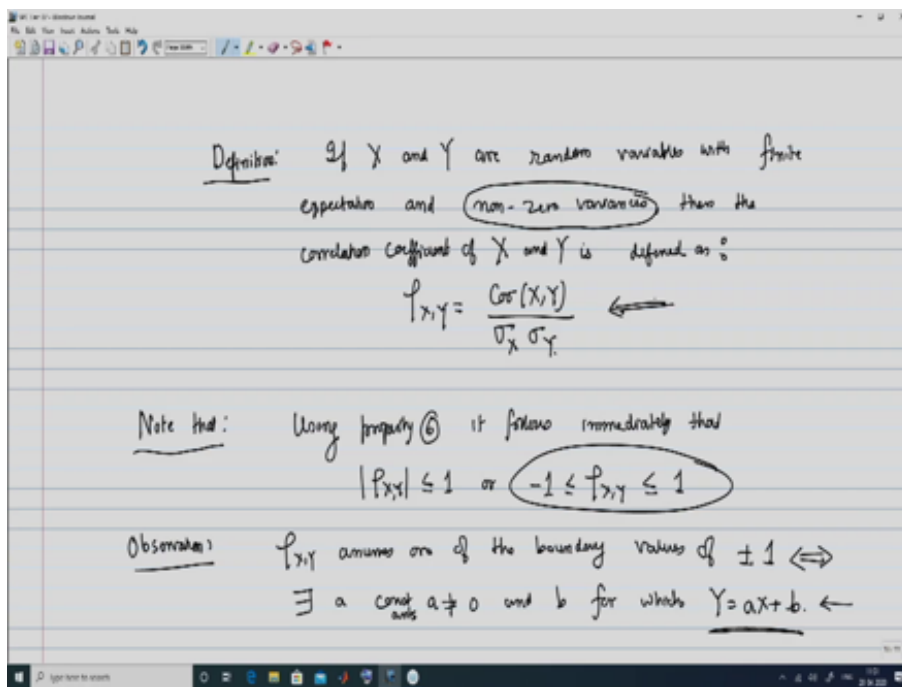 File Edit View Insert Actions Tools Help
Definition: If X and Y are random variables with finite
expectation and non-zero variances then the
correlation coefficient of X and Y is defined as:
ρX,Y = Cov(X,Y) / σX σY.
Note that: Using property ⑥ it follows immediately that
|ρX,Y| ≤ 1 or -1 ≤ ρX,Y ≤ 1
Observation: ρX,Y assumes one of the boundary values of ±1 ⇔
∃ a constants a ≠ 0 and b for which Y = aX + b. ←
Type here to search